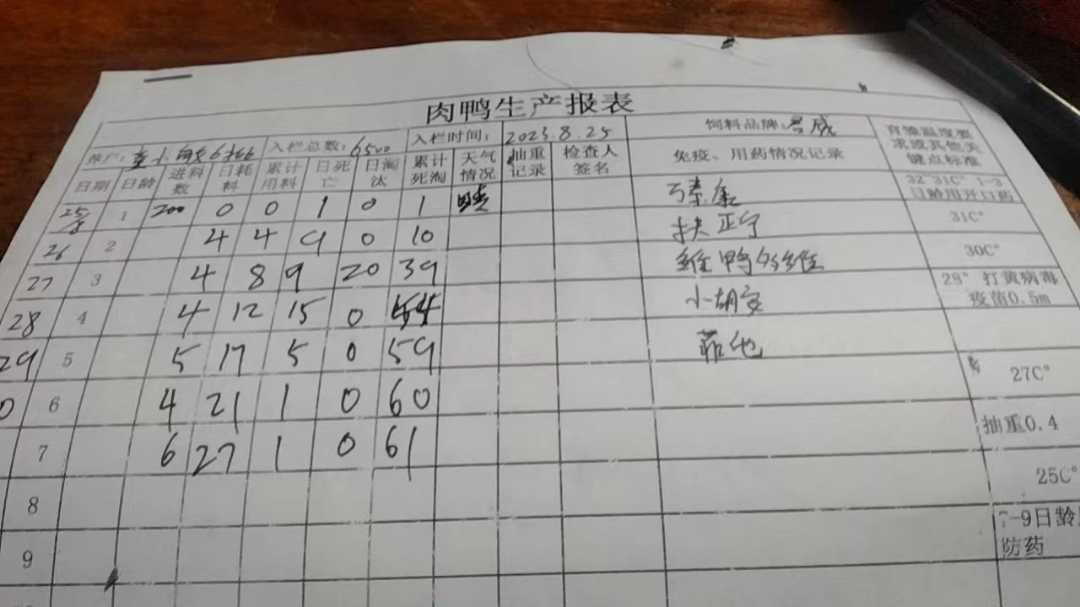 肉鸭生产报表
入栏总数: 6500 入栏时间: 2023.8.25 饲料品牌: 育雏温度要求或其他关键点标准
日期 日龄 进料数 日耗料 累计用料 日死亡 日淘汰 累计死淘 天气情况 抽重记录 检查人签名 免疫、用药情况记录
25/8 1 200 0 0 1 0 1 晴 32-31C° 1-3日龄用开口药
26 2 4 4 9 0 10 扶正宁 31C°
27 3 4 8 9 20 39 30C°
28 4 4 12 15 0 54 28° 打黄病毒疫苗0.5m
29 5 5 17 5 0 59
0 6 4 21 1 0 60 27C°
7 6 27 1 0 61 抽重0.4
8 25C°
9 7-9日龄 防药